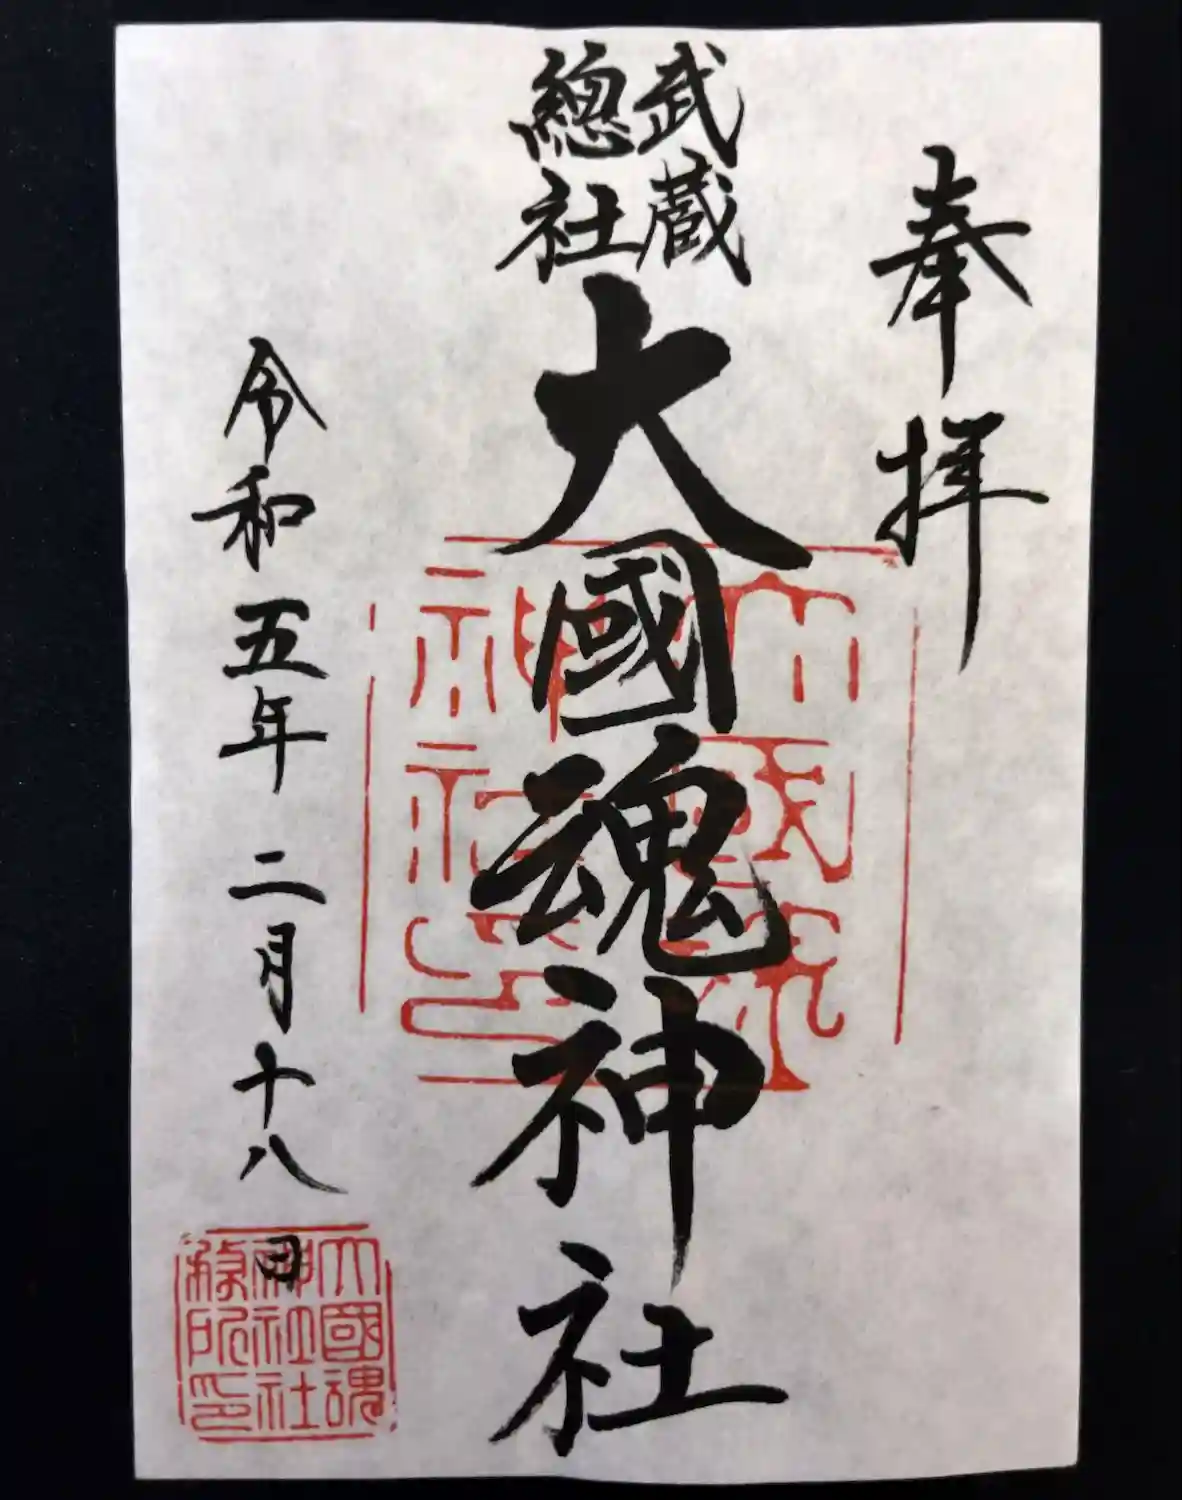 奉拝
武蔵
總社
大國魂神社
令和五年二月十八日
大國魂
神社社
務所印